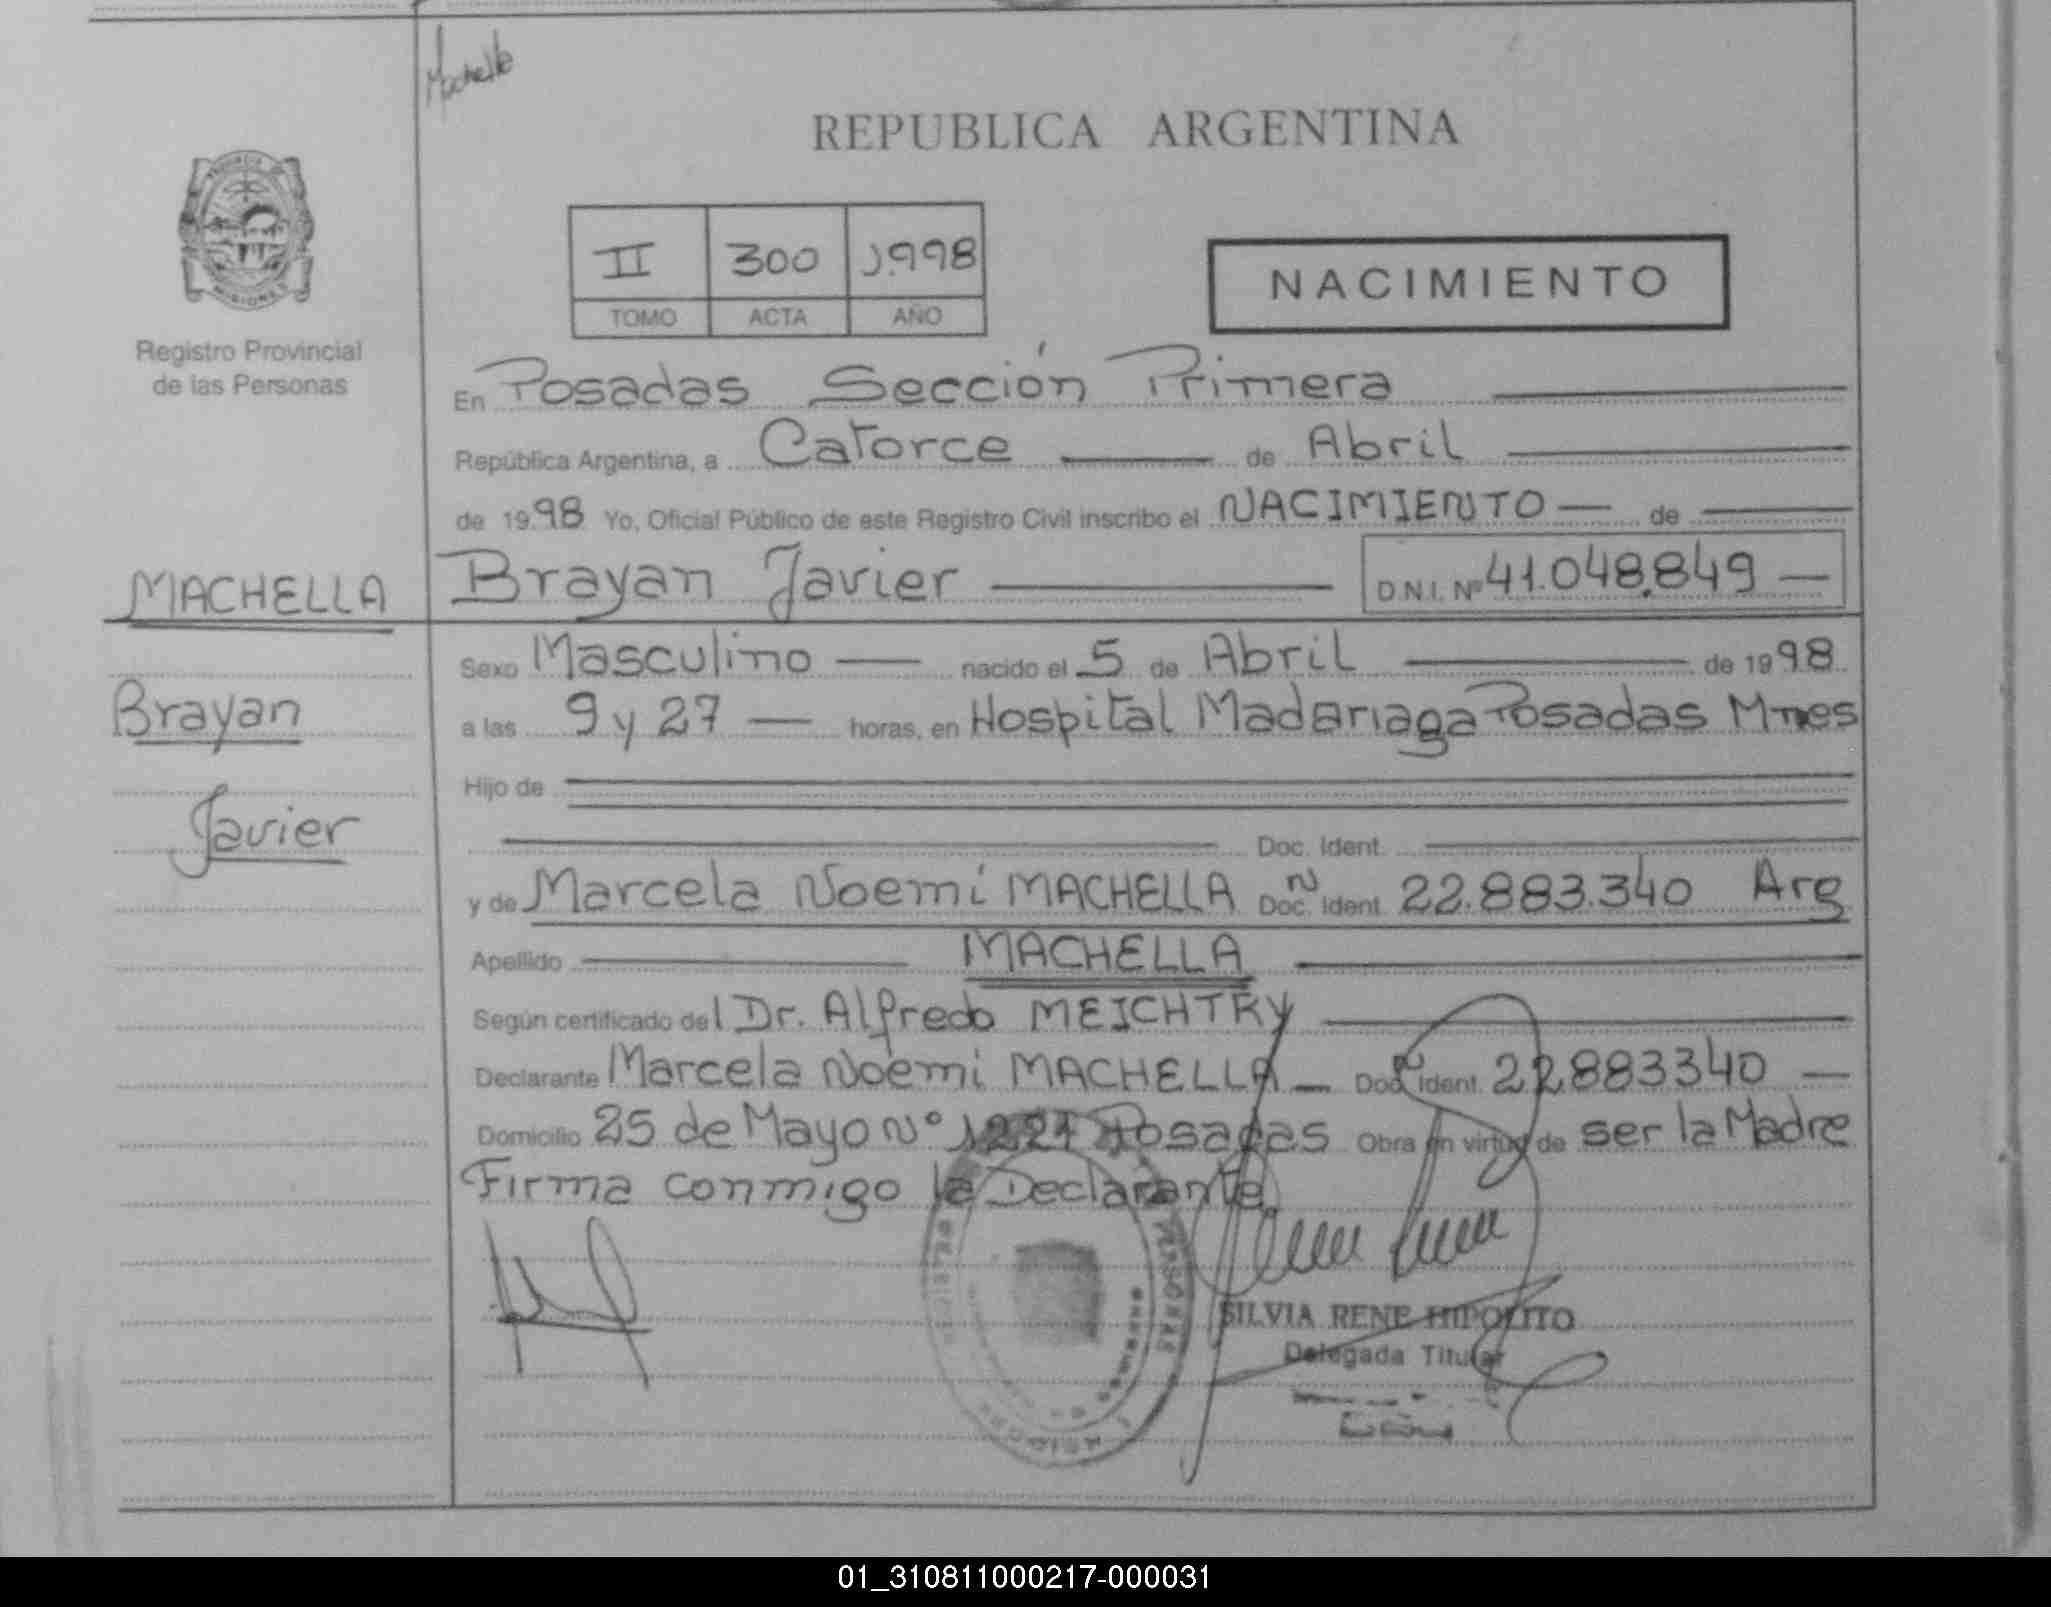 Machella
REPUBLICA ARGENTINA
PROVINCIA DE
MISIONES
II 300 1.998
TOMO ACTA AÑO
NACIMIENTO
Registro Provincial
de las Personas
En Posadas Sección Primera
República Argentina, a Catorce de Abril
de 19 98 Yo, Oficial Público de este Registro Civil inscribo el NACIMIENTO de
MACHELLA
Brayan Javier D.N.I. Nº 41.048.849
Sexo Masculino nacido el 5 de Abril de 19 98
Brayan
a las 9 y 27 horas, en Hospital Madariaga Posadas Mnes
Hijo de
Javier
Doc. Ident.
y de Marcela Noemi MACHELLA Doc. N Ident. 22.883.340 Arg
Apellido MACHELLA
Según certificado del Dr. Alfredo MEICHTRY
Declarante Marcela Noemi MACHELLA Doc. N Ident. 22883340
Domicilio 25 de Mayo Nº Posadas Obra en virtud de ser la Madre
Firma conmigo la Declarante
PERSONAS
SILVIA RENE HIPOLITO
Delegada Titular
01_310811000217-000031